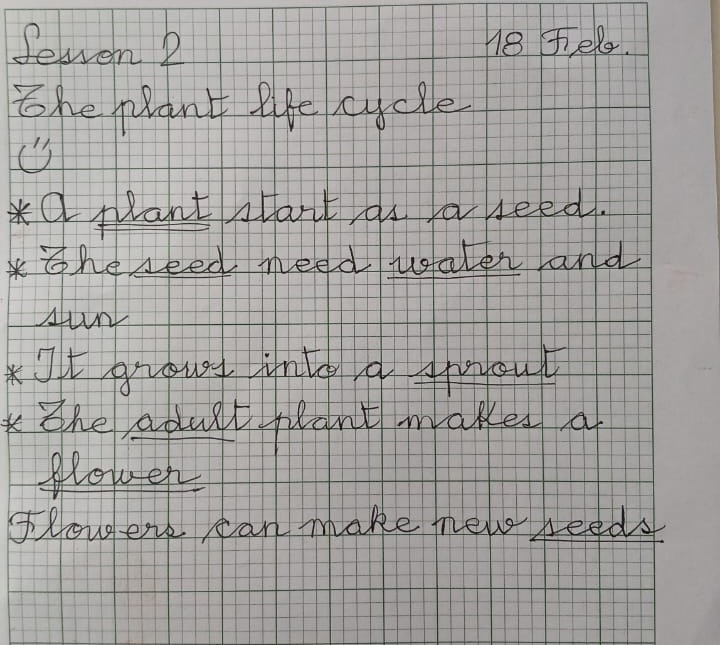 Lesson 2 18 Feb.
The plant life cycle
* A plant start as a seed.
* The seed need water and
sun
* It grows into a sprout
* The adult plant makes a
flower
Flowers can make new seeds